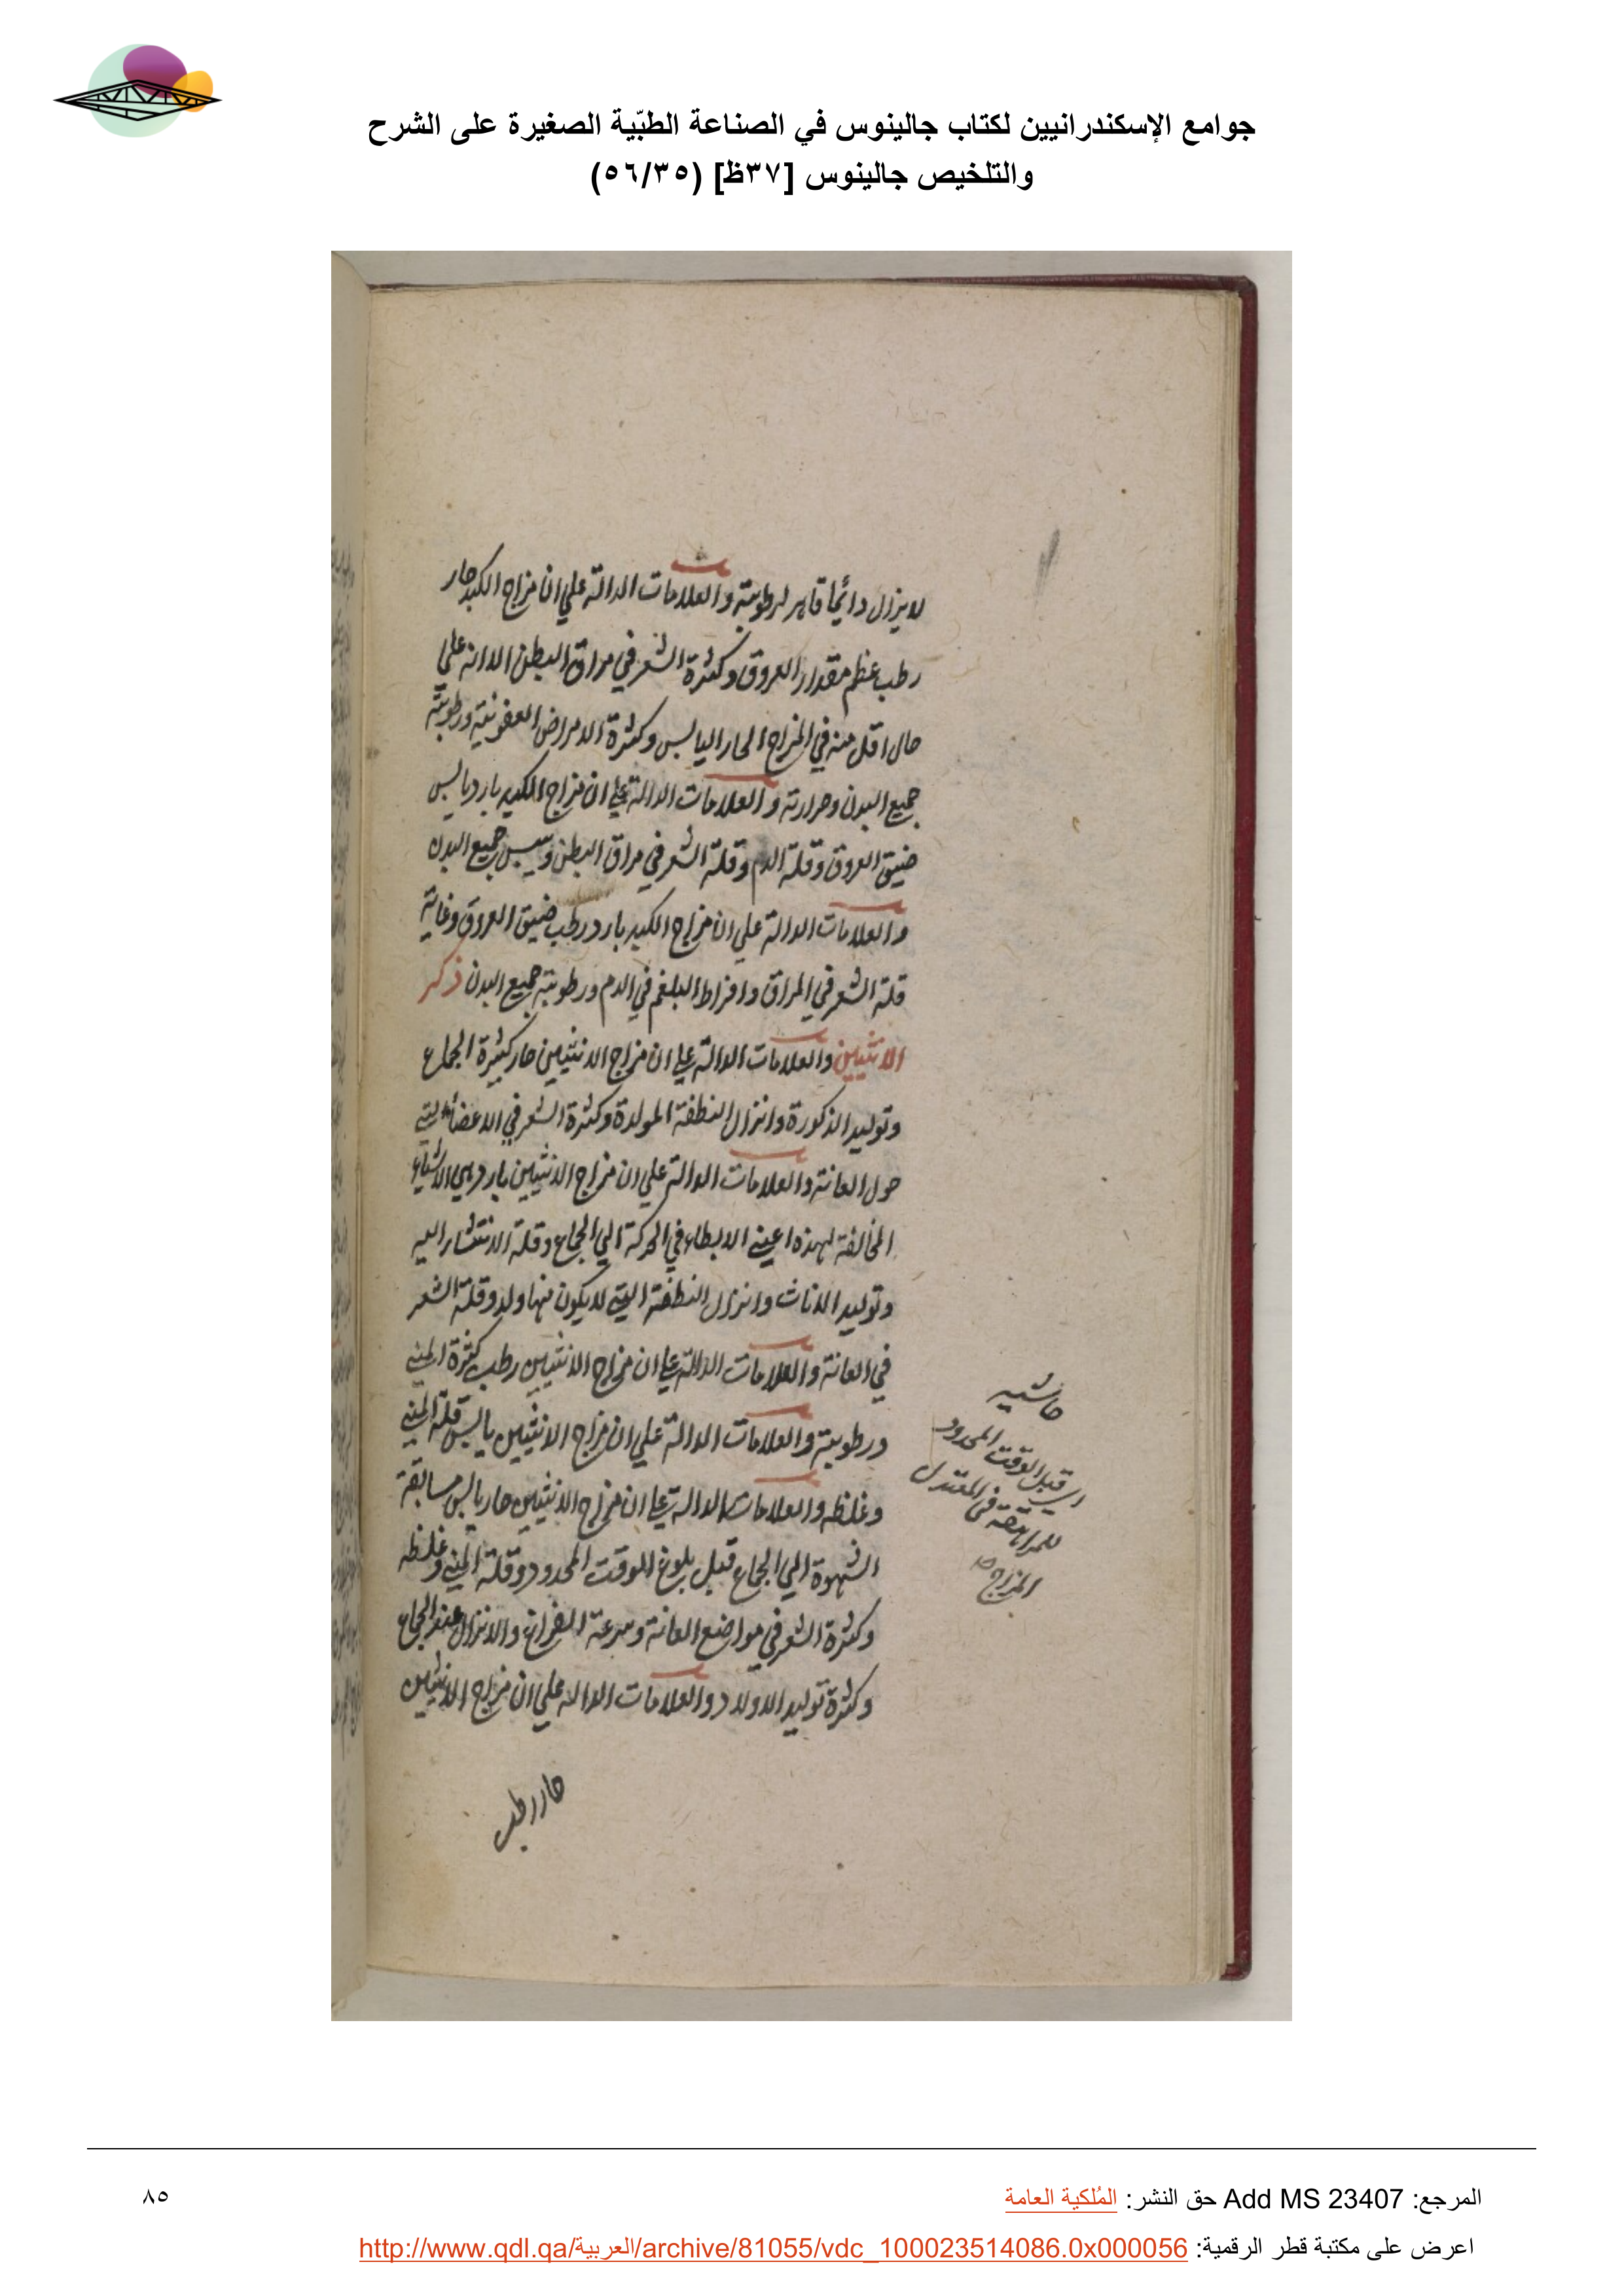 جوامع الإسكندرانيين لكتاب جالينوس في الصناعة الطبّية الصغيرة على الشرح
والتلخيص جالينوس [٣٧ظ] (٥٦/٣٥)
لا يزال دائما قاهر لرطوبته والعلامات الدالة علي ان مزاج الكبد حار
رطب عظم مقدار العروق وكثرة الشعر في مراق البطن الا انه علي
حال اقل منه في المزاج الحار اليابس وكثرة الامراض العفونية ورطوبة
جميع البدن وحرارته والعلامات الدالة علي ان مزاج الكبد بارد يابس
ضيق العروق وقلة الدم وقلة الشعر في مراق البطن ويبس جميع البدن
والعلامات الدالة علي ان مزاج الكبد بارد رطب ضيق العروق وغاية
قلة الشعر في المراق وافراط البلغم في الدم ورطوبة جميع البدن ذكر
الانثيين والعلامات الدالة علي ان مزاج الانثيين حار كثيرة الجماع
وتوليد الذكورة وانزال النطفة المولدة وكثرة الشعر في الاعضاء التي
حول العانة والعلامات الدالة علي ان مزاج الانثيين بارد هي الاشياء
المخالفة لهذه اعني الابطاء في الحركة الي الجماع وقلة الانتشار اليه
وتوليد الاناث وانزال النطفة التي لا يكون منها ولد وقلة الشعر
في العانة والعلامات الدالة علي ان مزاج الانثيين رطب كثرة المني
ورطوبته والعلامات الدالة علي ان مزاج الانثيين يابس قلة المني
وغلظه والعلامات الدالة علي ان مزاج الانثيين حار يابس مسابقة
الشهوة الي الجماع قبل بلوغ الوقت المحدود وقلة المني وغلظه
وكثرة الشعر في مواضع العانة وسرعة الفراغ والانزال عند الجماع
وكثرة توليد الاولاد والعلامات الدالة علي ان مزاج الانثيين
حار رطب
حاشيه
اي قبل الوقت المحدود
للمراهقة في المعتدل
المزاج
المرجع: Add MS 23407 حق النشر: المُلكية العامة
٨٥
اعرض على مكتبة قطر الرقمية: http://www.qdl.qa/العربية/archive/81055/vdc_100023514086.0x000056